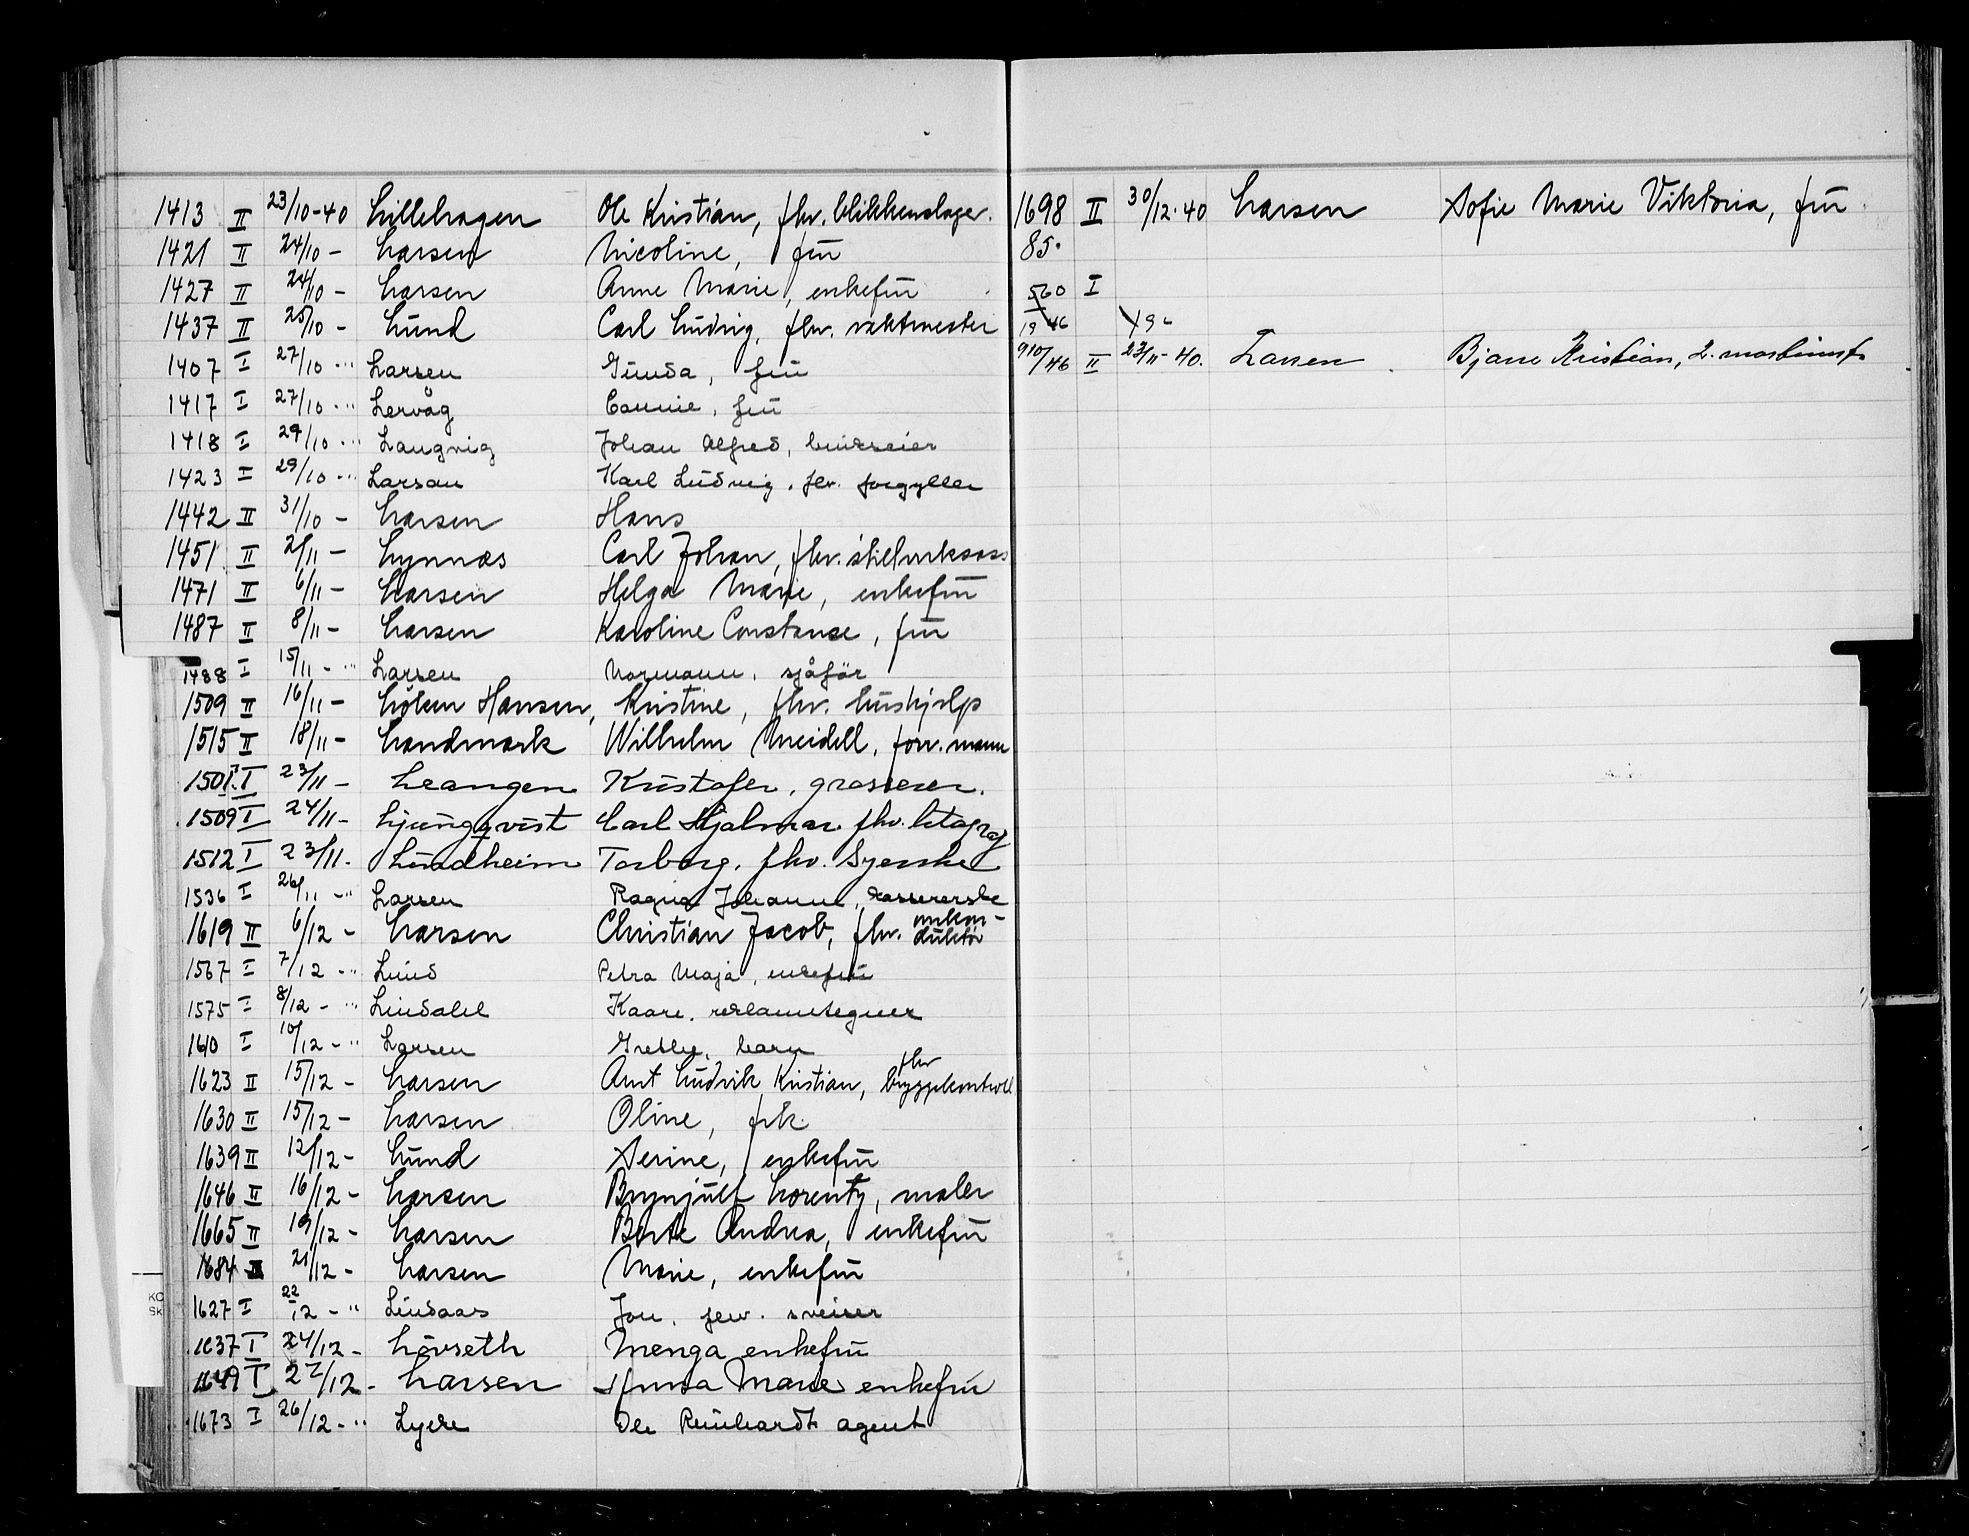 1413 II 23/10-40 Lillehagen Ole Kristian, fhv. blikkenslager.
1421 II 24/10 - Larsen Nicoline, frü
1427 II 24/10 - Larsen Anne Marie, enkefrü
1437 II 25/10 - Lünd Carl Lüdvig, fhv. vaktmester
1407 I 27/10 -" Larsen Günda, frü
1417 I 27/10 -" Lervåg frü
1418 I 29/10 -" Langvig Johan Alfred, brükseier
1423 I 29/10 -" Larsen Karl Lüdvig, fhv. forgyller
1442 II 31/10 - Larsen Hans
1451 II 2/11 - Lynnæs Carl Johan, fhv.
1471 II 6/11 - Larsen Helga Marie, enkefrü
1487 II 8/11 - Larsen Karoline Constanse, frü
1488 I 15/11 -" Larsen Normann, sjåfør
1509 II 16/11 - Løken Hansen, Kristine, fhv. hüshjelp
1515 II 18/11 - Landmark Wilhelm Meidell, forr.mann
1501 I 23/11 - Leangen Kristofer, grosserer.
1509 I 24/11 - Ljüngqvist Carl Hjalmar fhv. litograf
1512 I 23/11. Lündheim Torborg, fhv. Syerske
1536 I 26/11 -" Larsen Ragna Johanne, kassererske
1619 II 6/12 - Larsen Christian Jacob, fhv. omkon-
düktør
1567 I 7/12 -" Lünd Petra Maja, enkefrü
1575 I 8/12 -" Lindahl Kaare, reklametegner
1610 I 10/12 -" Larsen Grethe, barn
fhv
1623 II 15/12 - Larsen Arnt Lüdvik Kristian, bryggekontroll
1630 II 15/12 - Larsen Oline, frk.
1639 II 12/12 - Lünd Serine, enkefrü
1646 II 16/12 - Larsen Brynjülf Lorentz, maler
1665 II 19/12 - Larsen Berte Andrea, enkefrü
1684 II 21/12 - Larsen Marie, enkefrü
1627 I 22/12 -" Lindaas Jon, fhv. sveiser
1637 I 24/12 - Lövseth Menga enkefrü
1649 I 27/12 - Larsen Anna Marie enkefrü
1673 I 26/12 -" Lyche Ole Reinhardt agent
1698 II 30/12.40 Larsen Sofie Marie Viktoria, frü.
85.
560 I
19 46
910/46 II 23/11-40. Larsen Bjarne Kristian, 2. maskinist